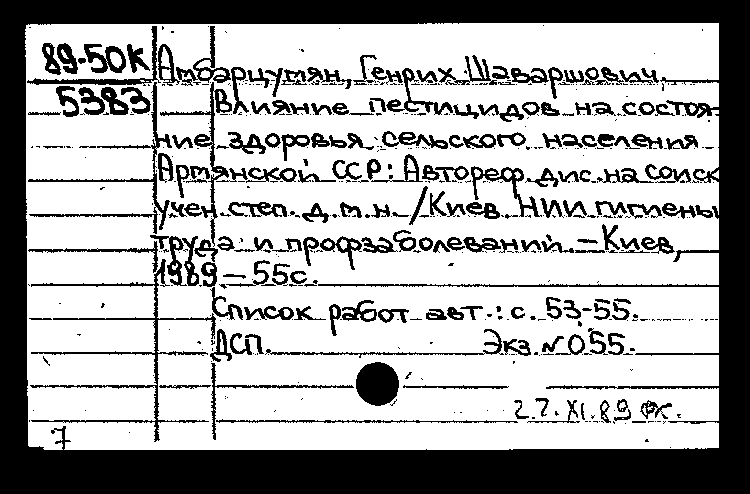 89-50К Амбарцумян, Генрих Шаваршович.
5383 Влияние пестицидов на состоя-
ние здоровья сельского населения
Армянской ССР: Автореф. дис. на соиск
учен. степ. д.м.н. /Киев. НИИ гигиены
труда и профзаболеваний. – Киев,
1989 – 55с.
Список работ авт.: с. 53-55.
ДСП. Экз. №055.
27.XI.89
7